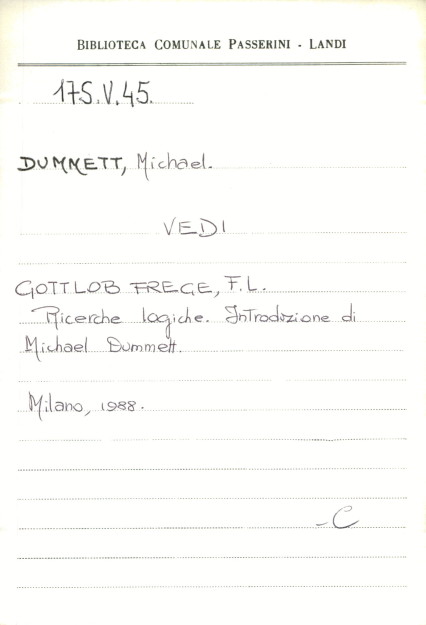 BIBLIOTECA COMUNALE PASSERINI - LANDI
175.V.45.
DUMMETT, Michael.
VEDI
GOTTLOB FREGE, F.L.
Ricerche logiche. Introduzione di
Michael Dummett.
Milano, 1988.
-C